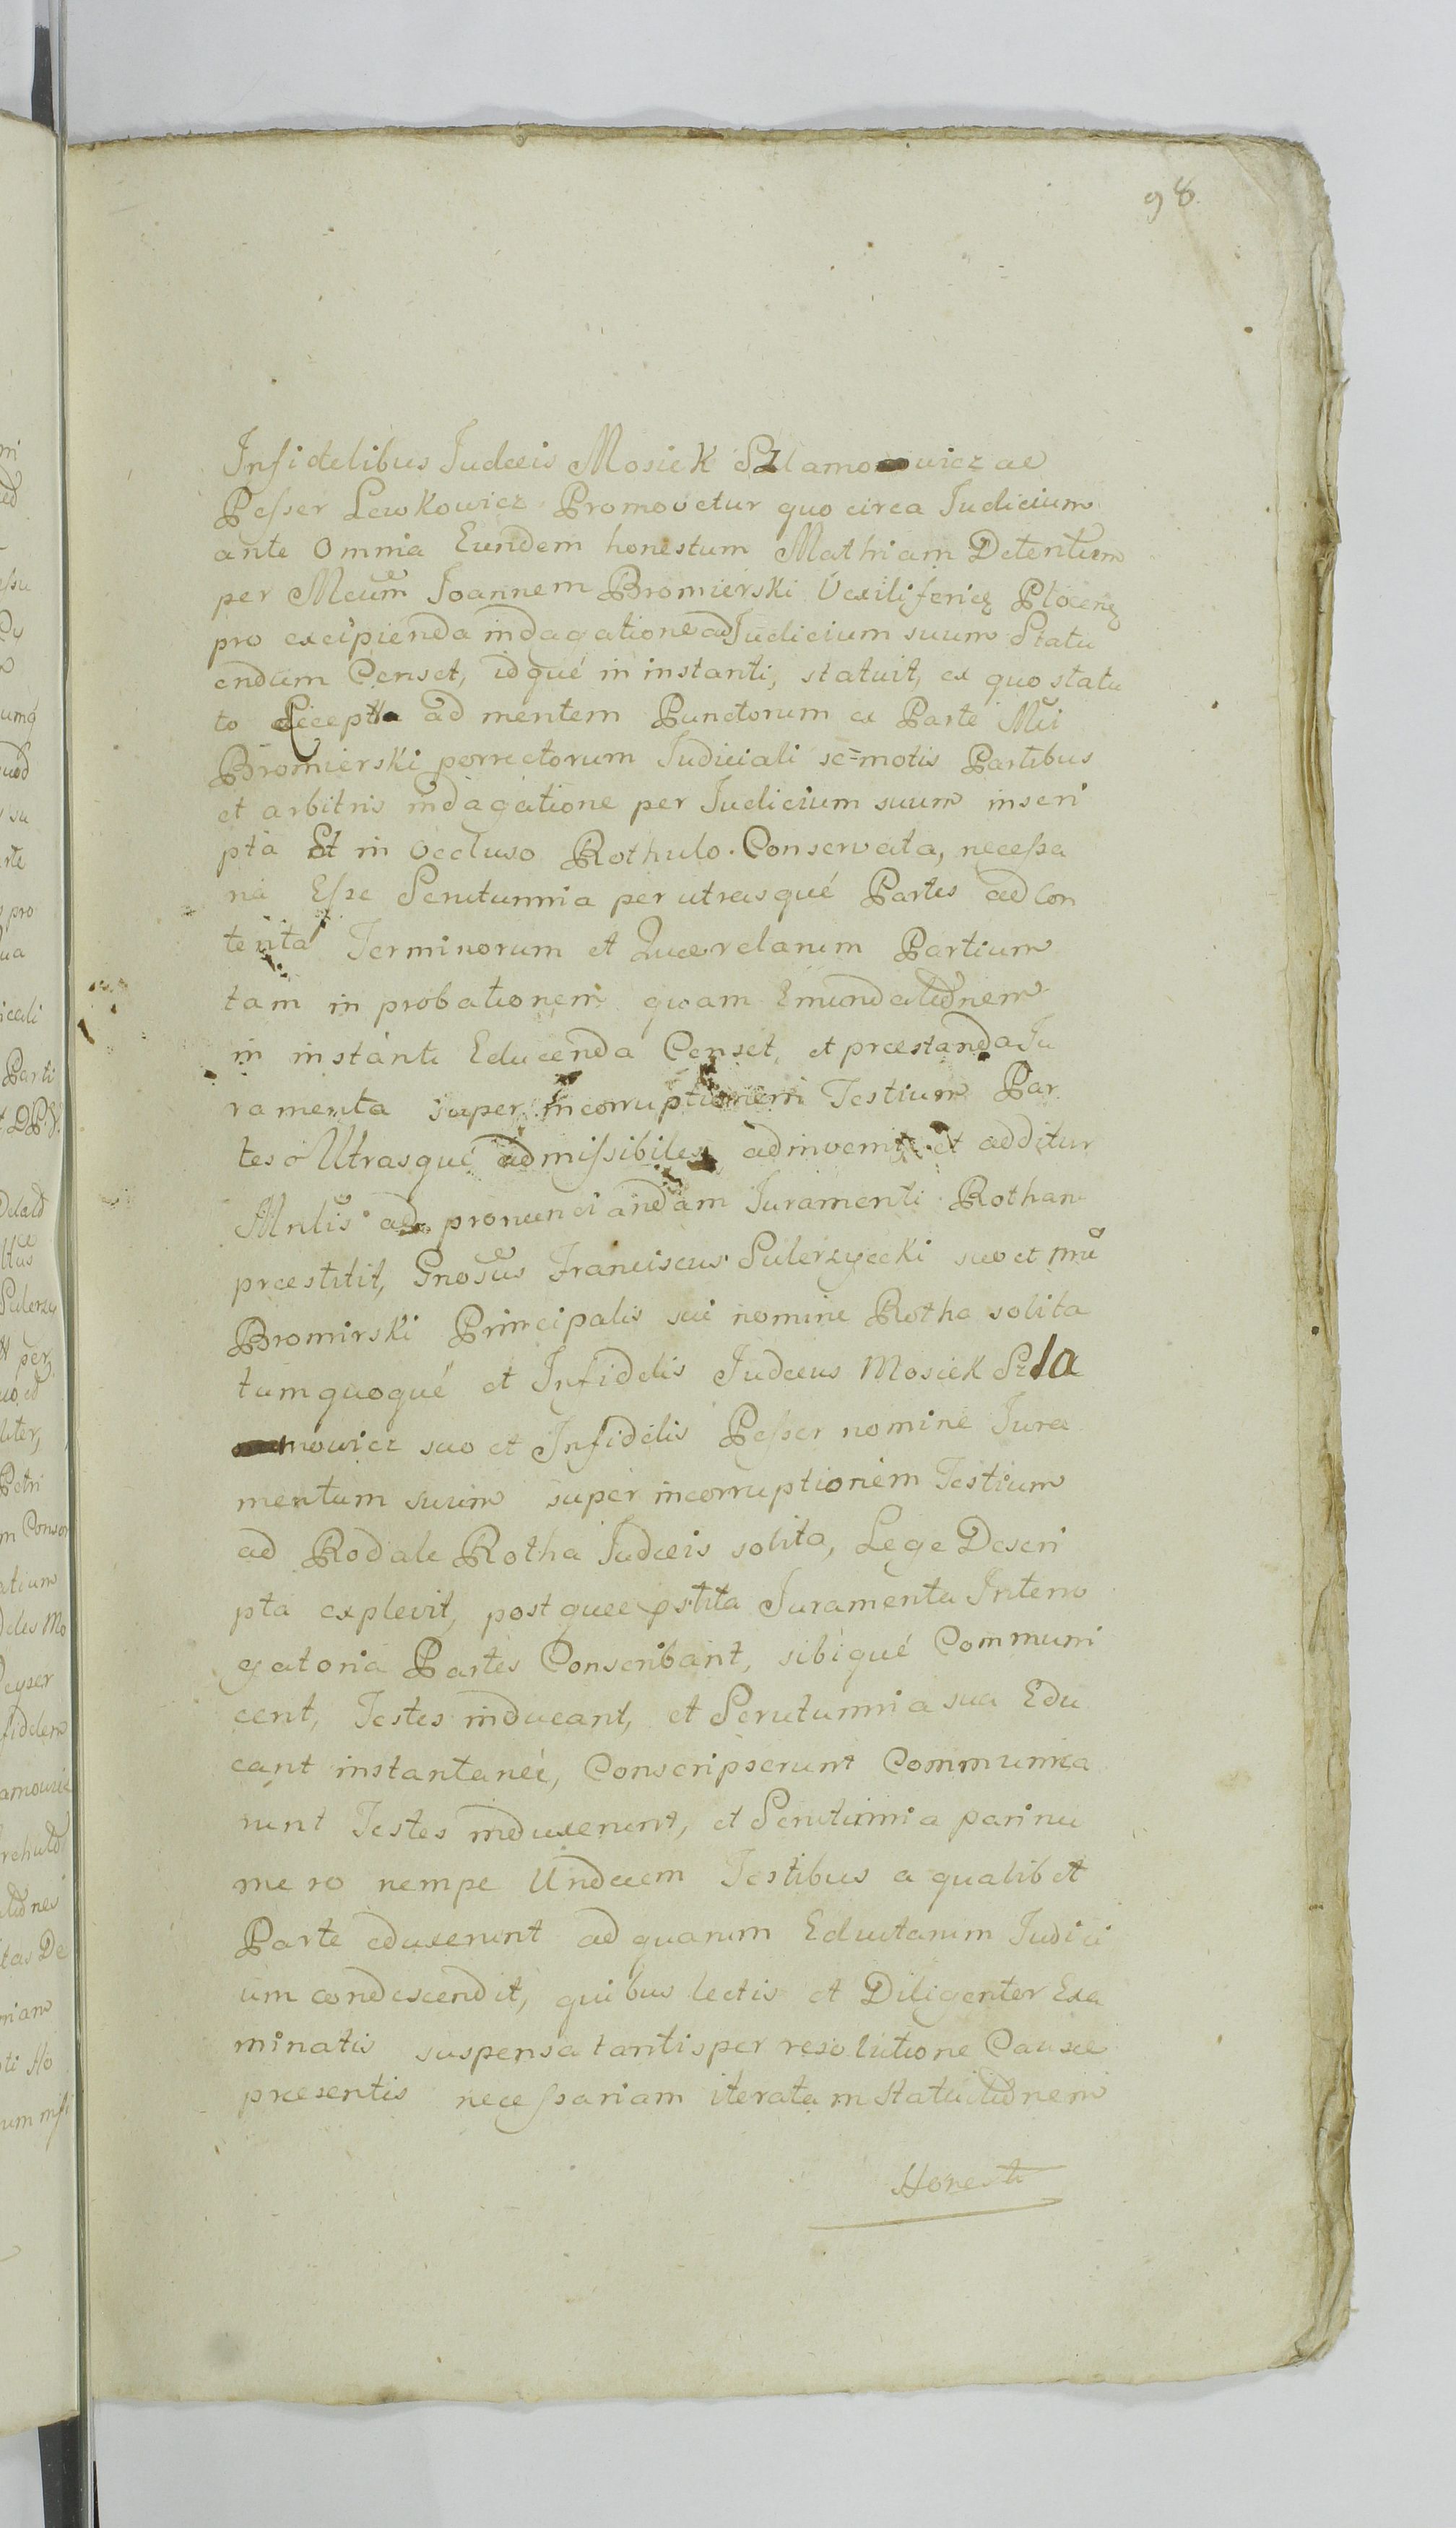 98.
Infidelibus Judæis Mosiek Szlamowicz ac
Pesser Lewkowicz Promovetur quo circa Judicium
ante Omnia Eundem honestum Mathiam Detentum
per Mcum Joannem Bromierski Vexiliferidę Plocenę
pro excipienda indagatione ad Judicium suum Statu
endum Censet, idqué in instanti, statuit, ex quo statu
to Excepta ad mentem Punctorum ex Parte Mci
Bromierski porrectorum Judiciali se=motis Partibus
et arbitris indagatione per Judicium suum inscri
pta Et in Occluso Rothulo Conservata, necessa
ria Esse Scrutinnia per utrasqué Partes ad Con
tenta Terminorum et Quærelarum Partium
tam in probationem quam Emundationem
in instanti Educenda Censet, et præstanda Ju
ramenta super incorruptionem Testium Par
tes Utrasqué admissibiles adinvenit et additur
Mnlis ad pronunciandam Juramenti Rotham
præstitit, Gnosus Franciscus Sulerzycki suo et Mci
Bromirski Principalis sui nomine Rotha solita
tum quoqué et Infidelis Judæus Mosiek Szla
mowicz suo et Infidelis Pesser nomine Jura
mentum suum super incorruptionem Testium
ad Rodale Rotha Judæis solita, Lege Descri
pta explevit, post quæ pstita Juramenta Interro
gatoria Partes Conscribant, sibiqué Communi
cent, Testes inducant, et Scrutinnia sua Edu
cant instantaneé, Conscripserunt Communica
runt Testes induxerunt, et Scrutinnia pari nu
mero nempe Undecem Testibus a qualibet
Parte eduxerunt ad quarum Eductarum Judici
um condescendit, quibus lectis et Diligenter Exa
minatis suspensa tantisper resolutione Causæ
præsentis necessariam iteratam Statuitionem
Honesti